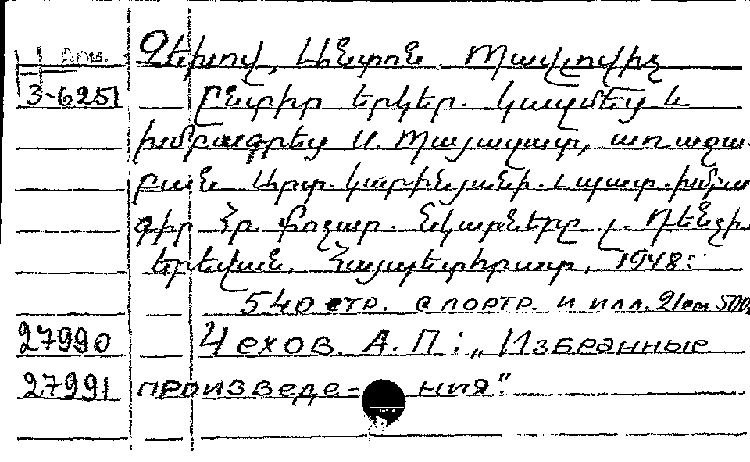 Չեխով, Անտոն Պավլովիչ
3-6251 Ընտիր երկեր. Կազմեց և
խմբագրեց Ս. Պայազատ, առաջա-
բան Արտ. Կարինյանի. պատ. խմբա-
գիր Հր. Քոչար. Նկարները
Երևան, Հայպետհրատ, 1948։
540 стр. с портр. и илл. 21см 5000
27990 Чехов. А. П: „Избранные
27991 произведе- ния"